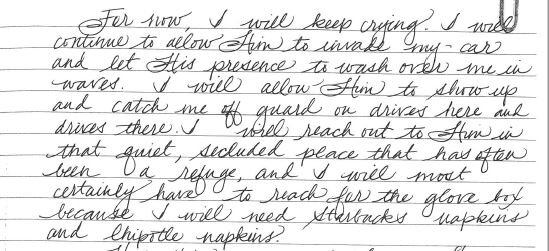 For now, I will keep crying. I will
continue to allow Him to invade my car
and let His presence to wash over me in
waves. I will allow Him to show up
and catch me off guard on drives here and
drives there. I will reach out to Him in
that quiet, secluded place that has often
been a refuge, and I will most
certainly have to reach for the glove box
because I will need Starbucks napkins
and Chipotle napkins.